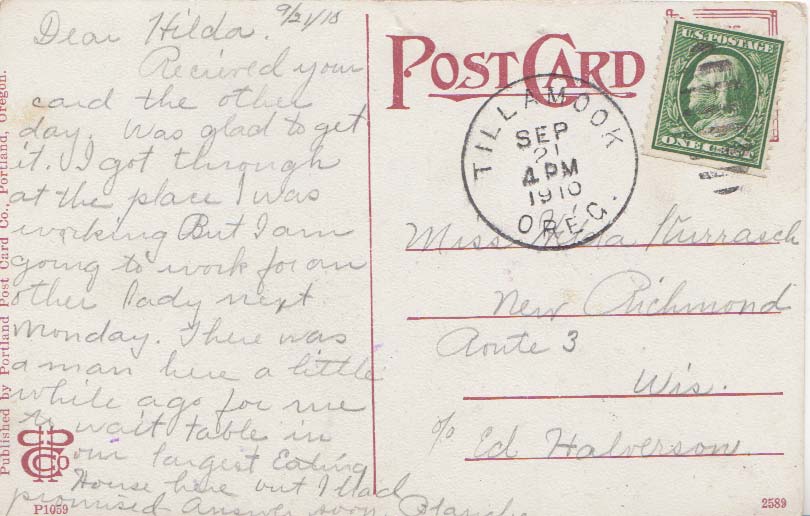 9/21/10
Dear Hilda.
Recieved your
card the other
day. Was glad to get
it. I got through
at the place I was
working But I am
going to work for an
other lady next
Monday. There was
a man here a little
while ago for me
to wait table in
our largest Eating
House here but I had
promised Answer soon.
POST CARD
U.S. POSTAGE
ONE CENT
TILLAMOOK
SEP
21
4 PM
1910
OREG.
Miss Hilda
New Richmond
Route 3
Wis.
c/o Ed Halverson.
Published by Portland Post Card Co., Portland, Oregon.
P1059
2589